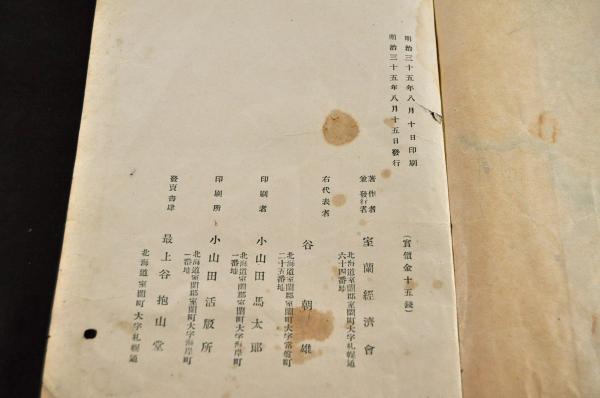 明治三十五年八月十日印刷
明治三十五年八月十五日發行
(實價金十五錢)
著作者
兼發行者
室蘭經濟會
北海道室蘭郡室蘭町大字札幌通
六十四番地
右代表者
谷朝雄
北海道室蘭郡室蘭町大字常盤町
二十五番地
印刷者
小山田馬太郎
北海道室蘭郡室蘭町大字海岸町
一番地
印刷所
小山田活版所
北海道室蘭郡室蘭町大字海岸町
一番地
發賣書肆
最上谷抱山堂
北海道室蘭町大字札幌通